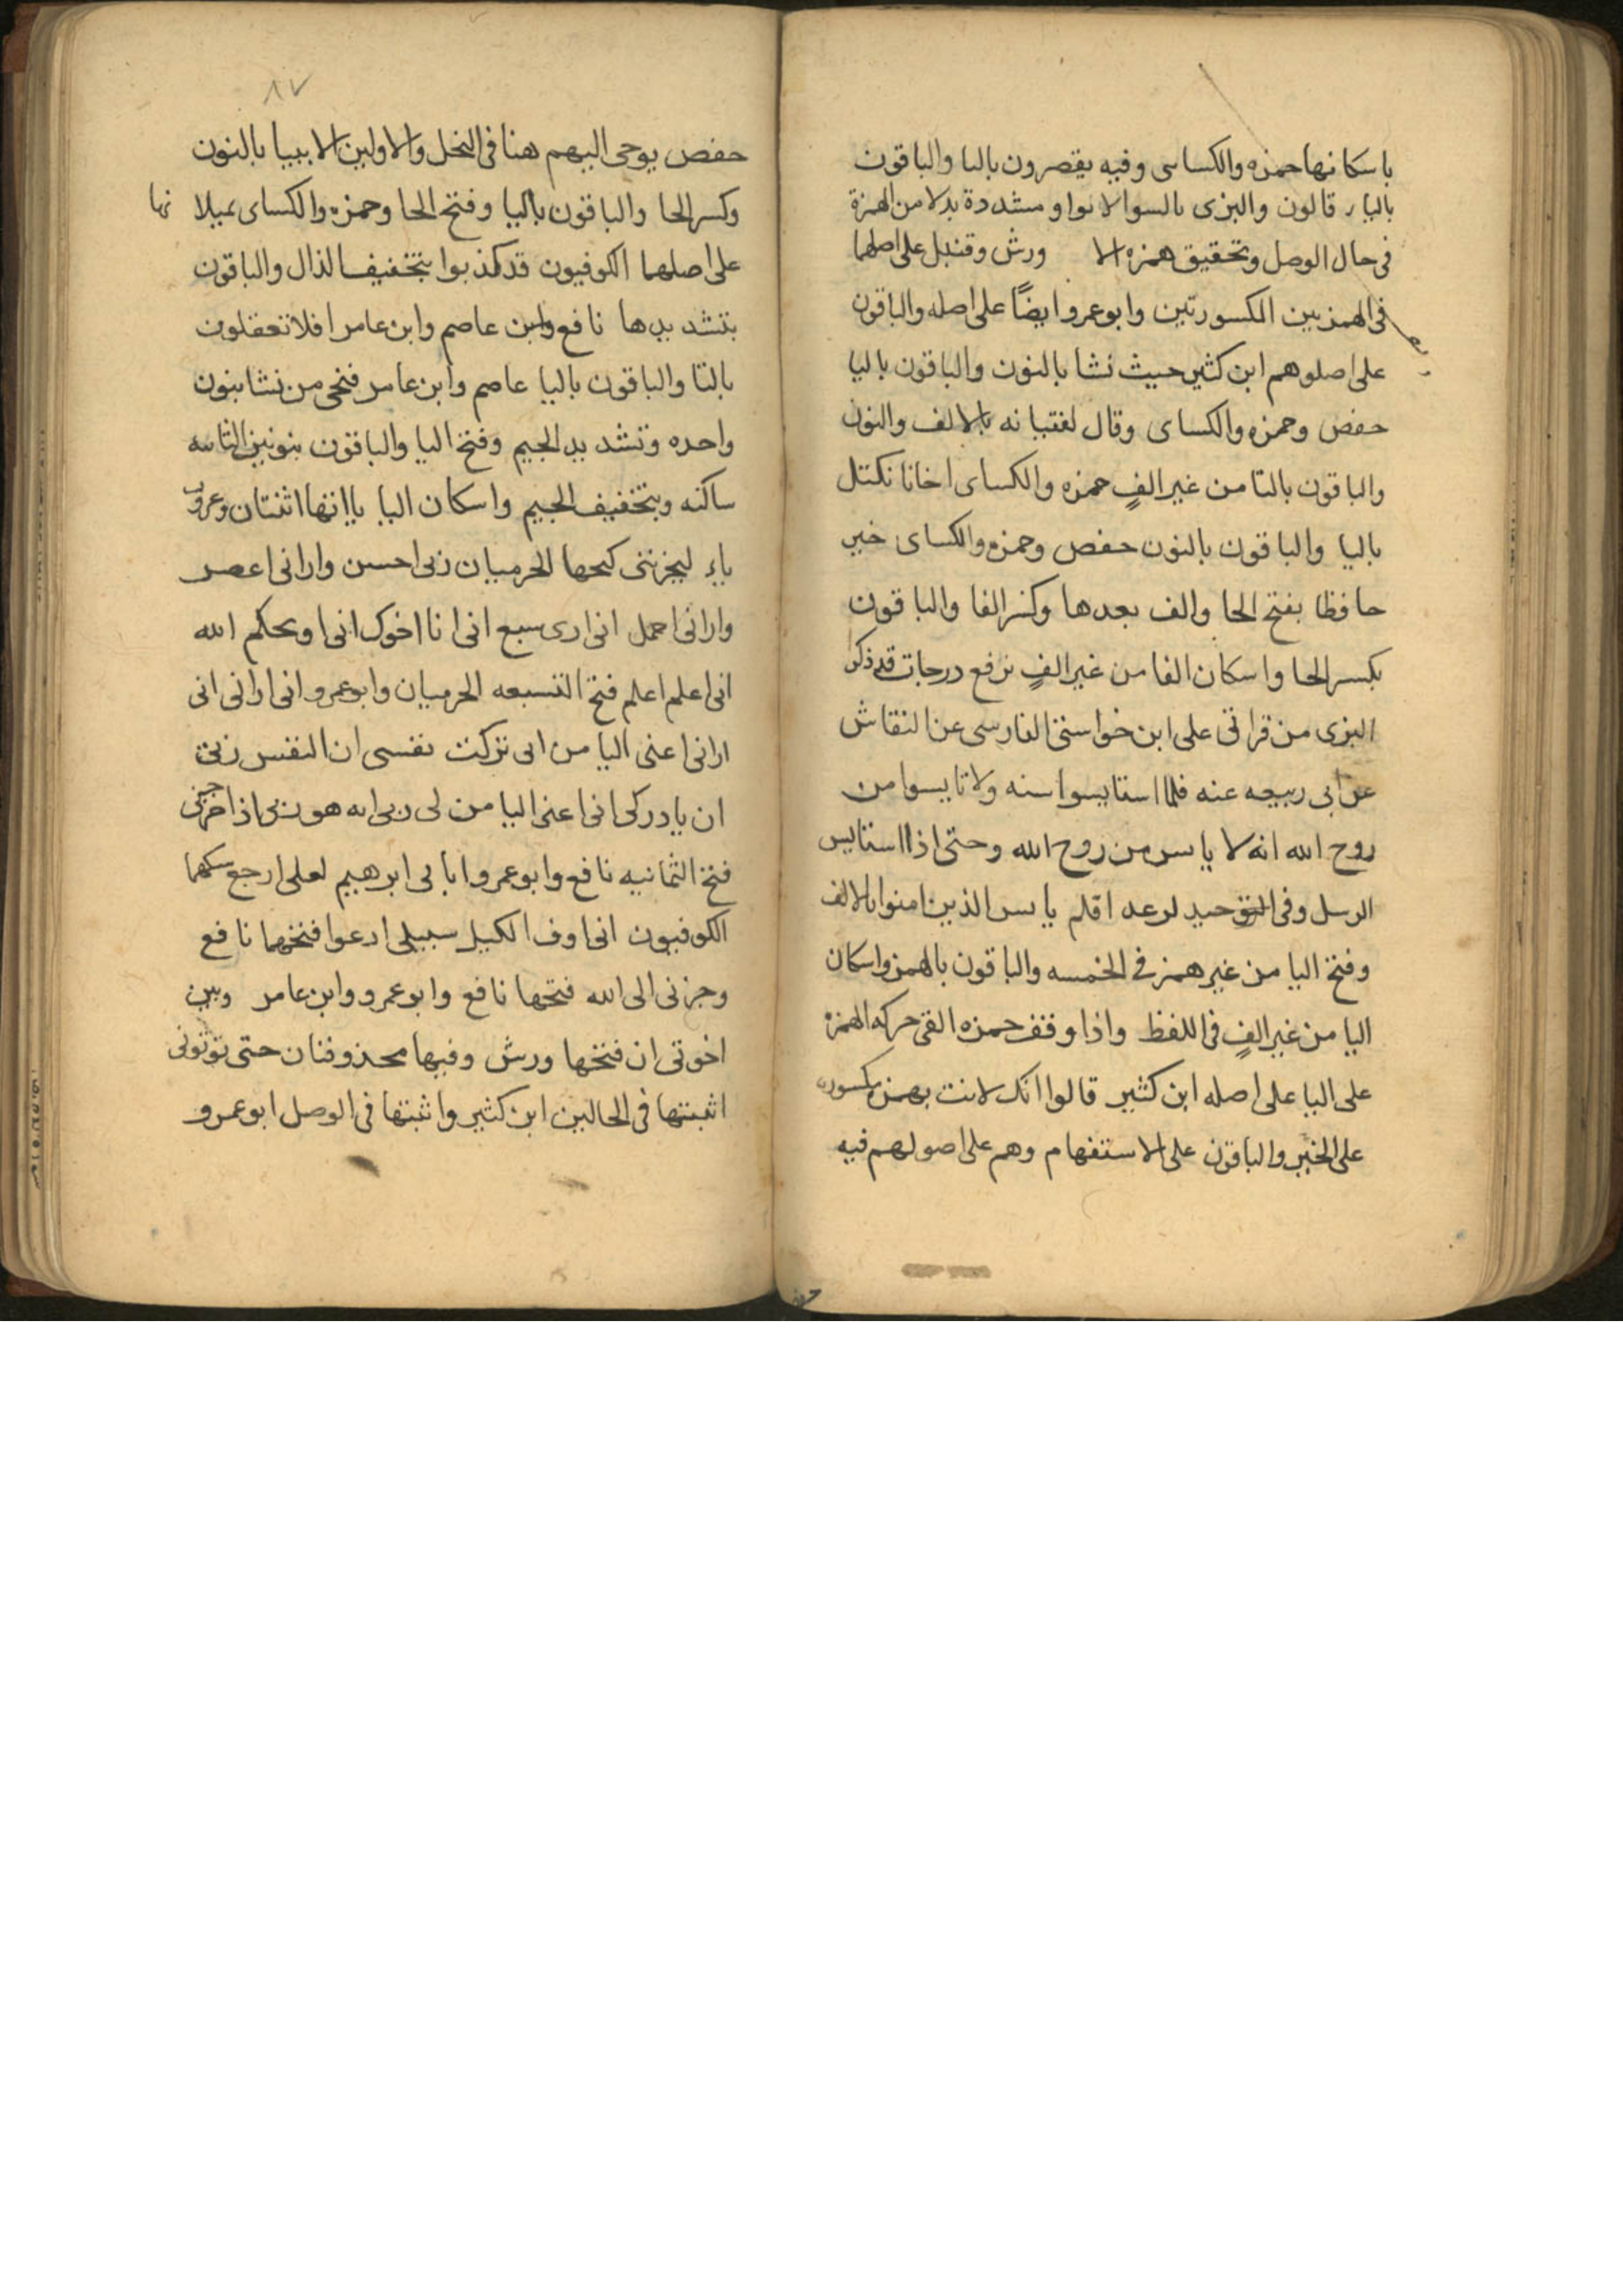 باسكانها حمزه والكساى وفيه يقصرون بالتا والباقون
باليا قالون والبزى بالسوالا بواو مشددة بدلا من الهمزة
فى حال الوصل وتحقيق همزه الا ورش وقنبل على اصلهما
فى الهمزتين الكسورتين وابوعمرو ايضًا على اصله والباقون
على اصلوهم ابن كثير حيث نشا بالنون والباقون باليا
حفص وحمزه والكساى وقال لفتيانه بالالف والنون
والباقون بالتا من غير الفٍ حمزه والكساى اخانا نكتل
باليا والباقون بالنون حفص وحمزه والكساى خير
حافظا بفتح الحا والف بعدها وكسر الفا والباقون
بكسر الحا واسكان الفا من غير الفٍ نرفع درجات قد ذكر
البزى من قراتى على ابن خواستى الفارسى عن النقاش
عن ابى ربيعه عنه فلما استايسوا منه ولا تايسوا من
روح الله انه لا يايس من روح الله وحتى اذا استايس
الرسل وفى الرعد افلم يايس الذين امنوا بالالف
وفتح اليا من غير همز فى الخمسه والباقون بالهمز واسكان
اليا من غير الفٍ فى اللفظ واذا وقف حمزه القى حركه الهمزه
على اليا على اصله ابن كثير قالوا انك لانت بهمزه مكسوره
على الخبر والباقون على الاستفهام وهم على اصولهم فيه
٨٧
حفص يوحى اليهم هنا فى النخل والاولين الانبيا بالنون
وكسر الحا والباقون باليا وفتح الحا وحمزه والكساى يميلانها
على اصلهما الكوفيون قد كذبوا بتخفيف الذال والباقون
بتشديدها نافع وابن عاصم وابن عامر افلا تعقلون
بالتا والباقون باليا عاصم وابن عامر فنجى من نشا بنون
واحده وتشديد الجيم وفتح اليا والباقون بنونين الثانيه
ساكنه وبتخفيف الجيم واسكان اليا ياانها اثنتان وعشرون
ياء ليحزننى فتحها الحرميان ربى احسن وارانى اعصر
وارانى احمل انى ارى سبع انى انا اخوك انى او يحكم الله
انى اعلم اعلم فتح التسعه الحرميان وابوعمرو انى ارانى انى
ارانى اعنى اليا من انى تركت نفسى ان النفس ربى
ان يادركى انى اعنى اليا من لى ربى انه هو ربى اذ اخرجنى
فتح الثمانيه نافع وابوعمرو ابابى ابرهيم لعلى ارجع سكنهما
الكوفيون انى اوف الكيل سبيلى ادعوا فتحهما نافع
وحزنى الى الله فتحها نافع وابوعمرو وابن عامر وبين
اخوتى ان فتحها ورش وفيها محذوفتان حتى توتونى
اثبتها فى الحالين ابن كثير واثبتها فى الوصل ابوعمرو